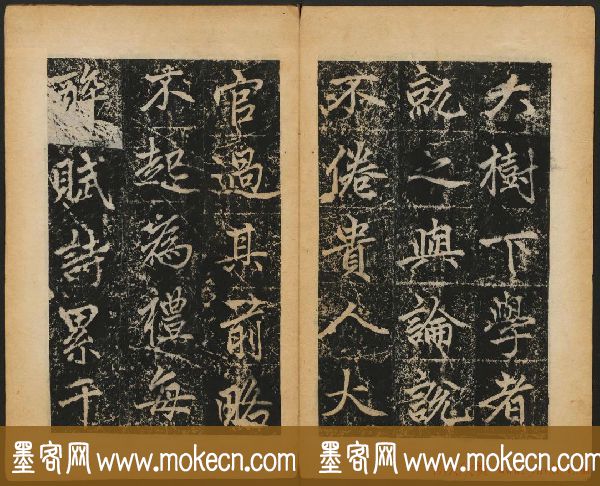 大樹下學者
就之與論説
不倦貴人大
官過其前略
不起為禮每
醉賦詩累千
墨客网 www.mokecn.com
墨客网 www.mokecn.com